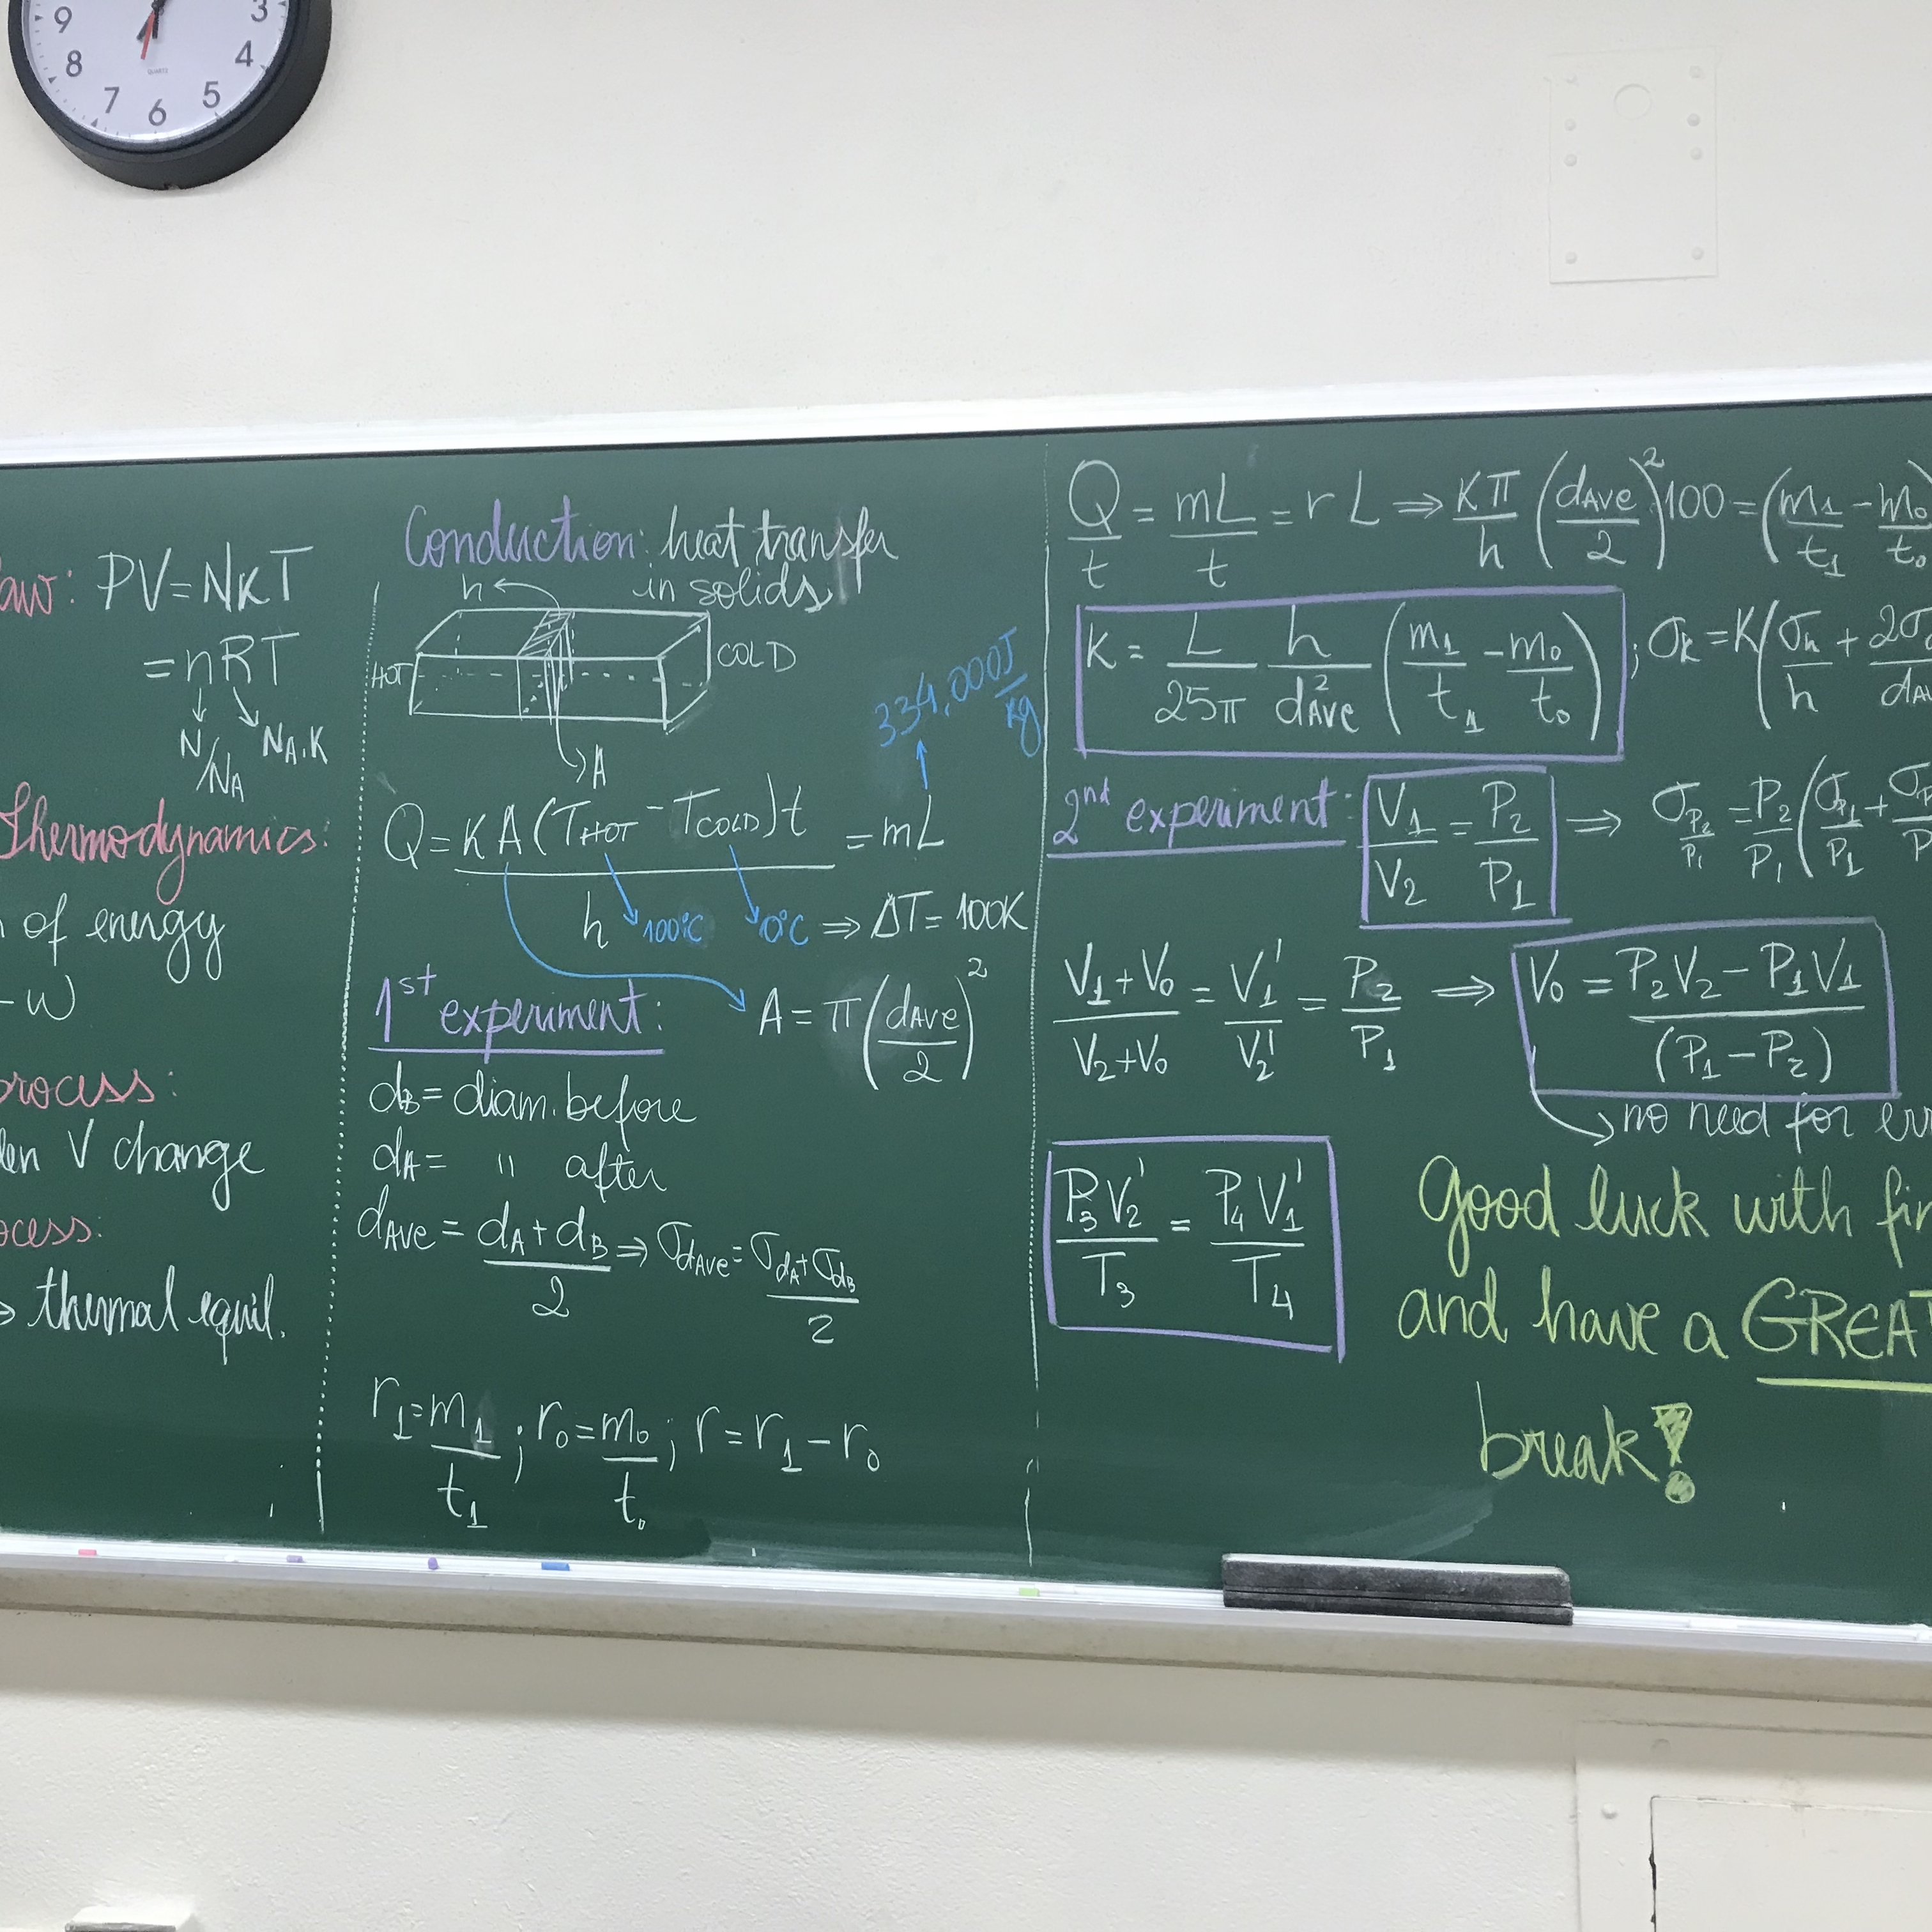 9 3
8 4
7 6 5
QUARTZ
aw: PV=NKT
=nRT
N/NA NA.K
Thermodynamics:
of energy
-W
process:
V change
ocess:
→ thermal equil.
Conduction: heat transfer
in solids
h
HOT COLD
A
334,000J/kg
Q = KA(THOT - TCOLD)t/h = mL
100°C 0°C ⇒ ΔT = 100K
1st experiment: A = π(dAVe/2)²
dB = diam. before
dA = " after
dAVe = (dA + dB)/2 ⇒ σdAVe = (σdA + σdB)/2
r1 = m1/t1 ; r0 = m0/t0 ; r = r1 - r0
Q/t = mL/t = rL ⇒ Kπ/h (dAVe/2)² 100 = (m1/t1 - m0/t0)
K = L/25π h/d²AVe (m1/t1 - m0/t0) ; σK = K(σh/h + 2σ
2nd experiment: V1/V2 = P2/P1 ⇒ σP2/P1 = P2/P1 (σP1/P1 +
(V1 + V0)/(V2 + V0) = V1'/V2' = P2/P1 ⇒ V0 = (P2V2 - P1V1)/(P1 - P2)
→ no need for
P3V2'/T3 = P4V1'/T4
Good luck with
and have a GREAT
break!